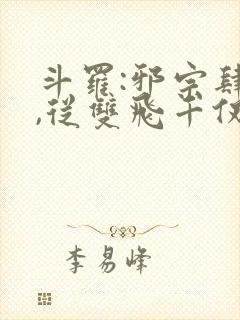 斗羅:邪宗肆
,從雙飛千仞
李易峰